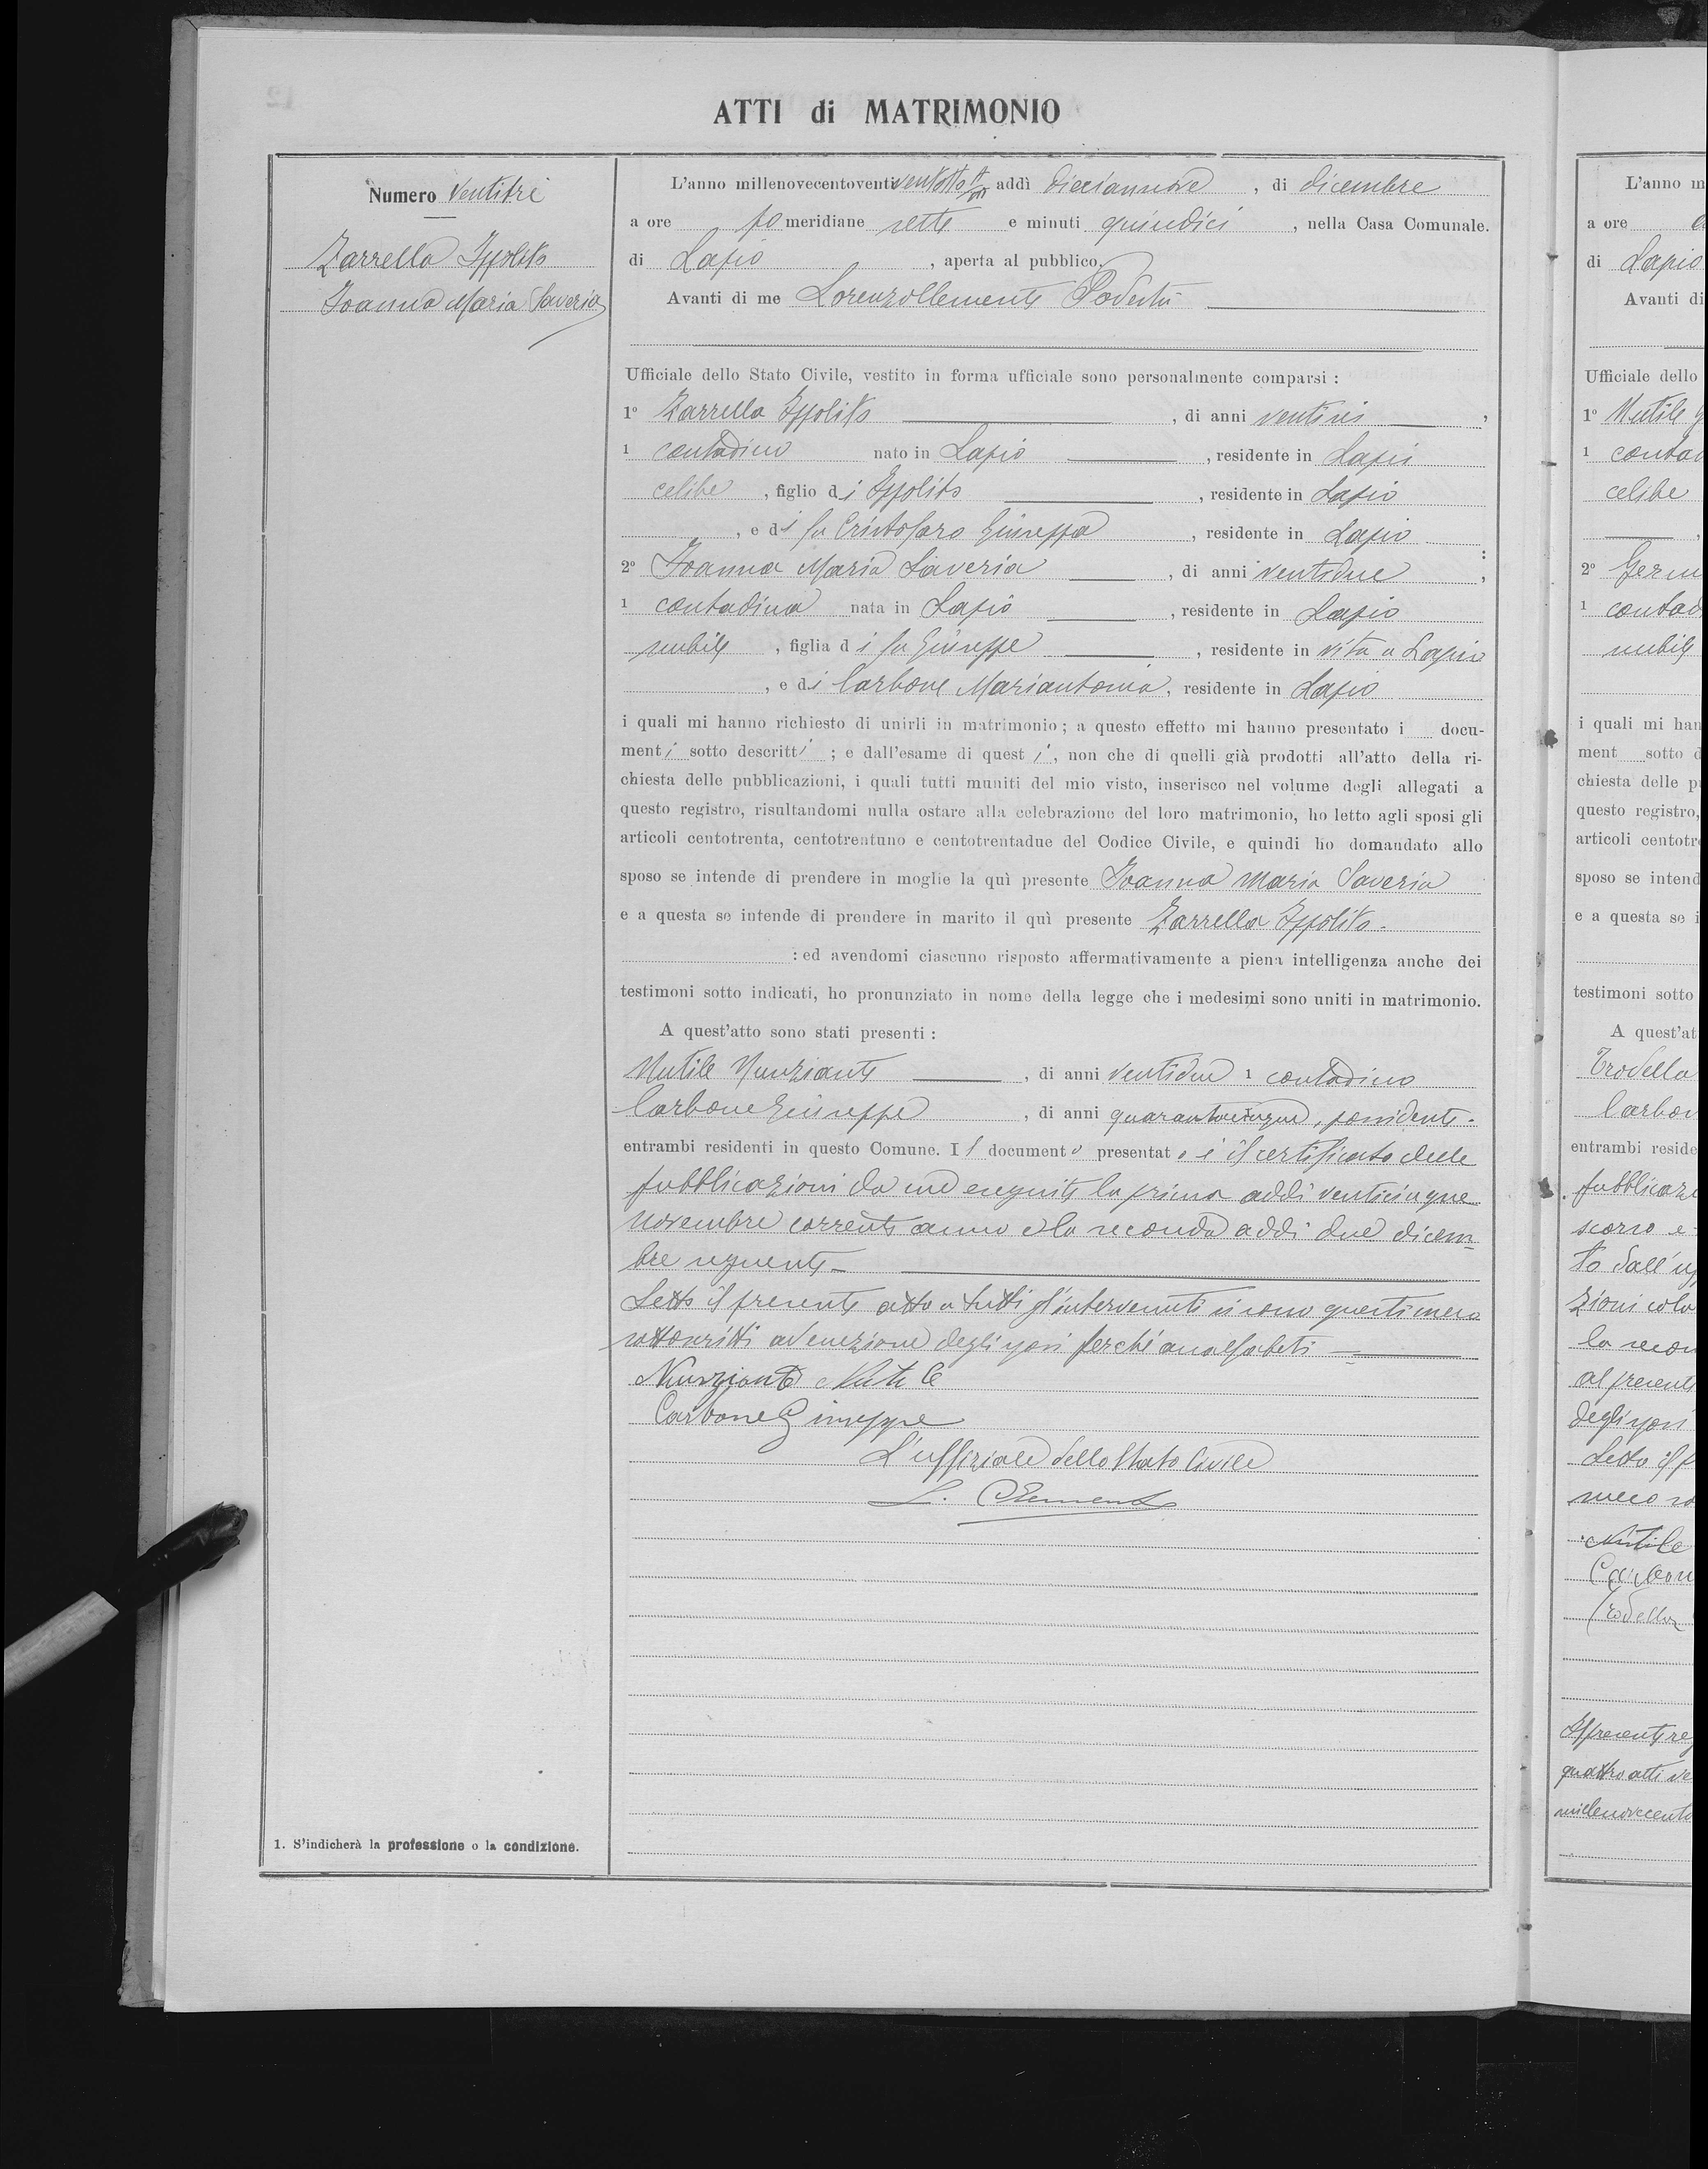 ATTI di MATRIMONIO
Numero Ventitré
Zarrella Ippolito
Ioanna Maria Saveria
L'anno millenovecentoventi ventotto addì diciannove, di dicembre
a ore po meridiane sette e minuti quindici, nella Casa Comunale.
di Lapio, aperta al pubblico.
Avanti di me Lorenzo Clemente Podestà
Ufficiale dello Stato Civile, vestito in forma ufficiale sono personalmente comparsi :
1° Zarrella Ippolito, di anni ventisei,
1 contadino nato in Lapio, residente in Lapio
celibe, figlio di Ippolito, residente in Lapio
, e di fu Cristofaro Giuseppa, residente in Lapio :
2° Ioanna Maria Saveria, di anni ventidue,
1 contadina nata in Lapio, residente in Lapio
nubile, figlia di fu Giuseppe, residente in vita a Lapio
, e di Carbone Mariantonia, residente in Lapio
i quali mi hanno richiesto di unirli in matrimonio; a questo effetto mi hanno presentato i docu-
menti sotto descritti; e dall'esame di questi, non che di quelli già prodotti all'atto della ri-
chiesta delle pubblicazioni, i quali tutti muniti del mio visto, inserisco nel volume degli allegati a
questo registro, risultandomi nulla ostare alla celebrazione del loro matrimonio, ho letto agli sposi gli
articoli centotrenta, centotrentuno e centotrentadue del Codice Civile, e quindi ho domandato allo
sposo se intende di prendere in moglie la quì presente Ioanna Maria Saveria
e a questa se intende di prendere in marito il quì presente Zarrella Ippolito.
: ed avendomi ciascuno risposto affermativamente a piena intelligenza anche dei
testimoni sotto indicati, ho pronunziato in nome della legge che i medesimi sono uniti in matrimonio.
A quest'atto sono stati presenti :
Nutile Nunziante, di anni ventidue 1 contadino
Carbone Giuseppe, di anni quarantacinque, possidente.
entrambi residenti in questo Comune. Il documento presentato è il certificato delle
pubblicazioni da me eseguite la prima addì venticinque
novembre corrente anno e la seconda addì due dicem=
bre seguente
Letto il presente atto a tutti gl'intervenuti si sono questi meco
sottoscritti ad eccezione degli sposi perché analfabeti
Nunziante Nutile
Carbone Giuseppe
L'uffiziale dello Stato Civile
L. Clemente
1. S'indicherà la professione o la condizione.
L'anno m
a ore
di Lapio
Avanti di
Ufficiale dello
1° Nutile
1 contad
celibe
2°
1 contad
nubile
i quali mi han
ment sotto d
chiesta delle p
questo registro,
articoli centotre
sposo se intend
e a questa se i
testimoni sotto
A quest'at
Trodella
Carbon
entrambi reside
pubblicazi
scorso e
to dall'uf
zioni colà
la secon
al presente
degli sposi
Letto il p
meco so
Nutile
Carbon
Trodella
Il presente reg
quattro atti
millenovecento